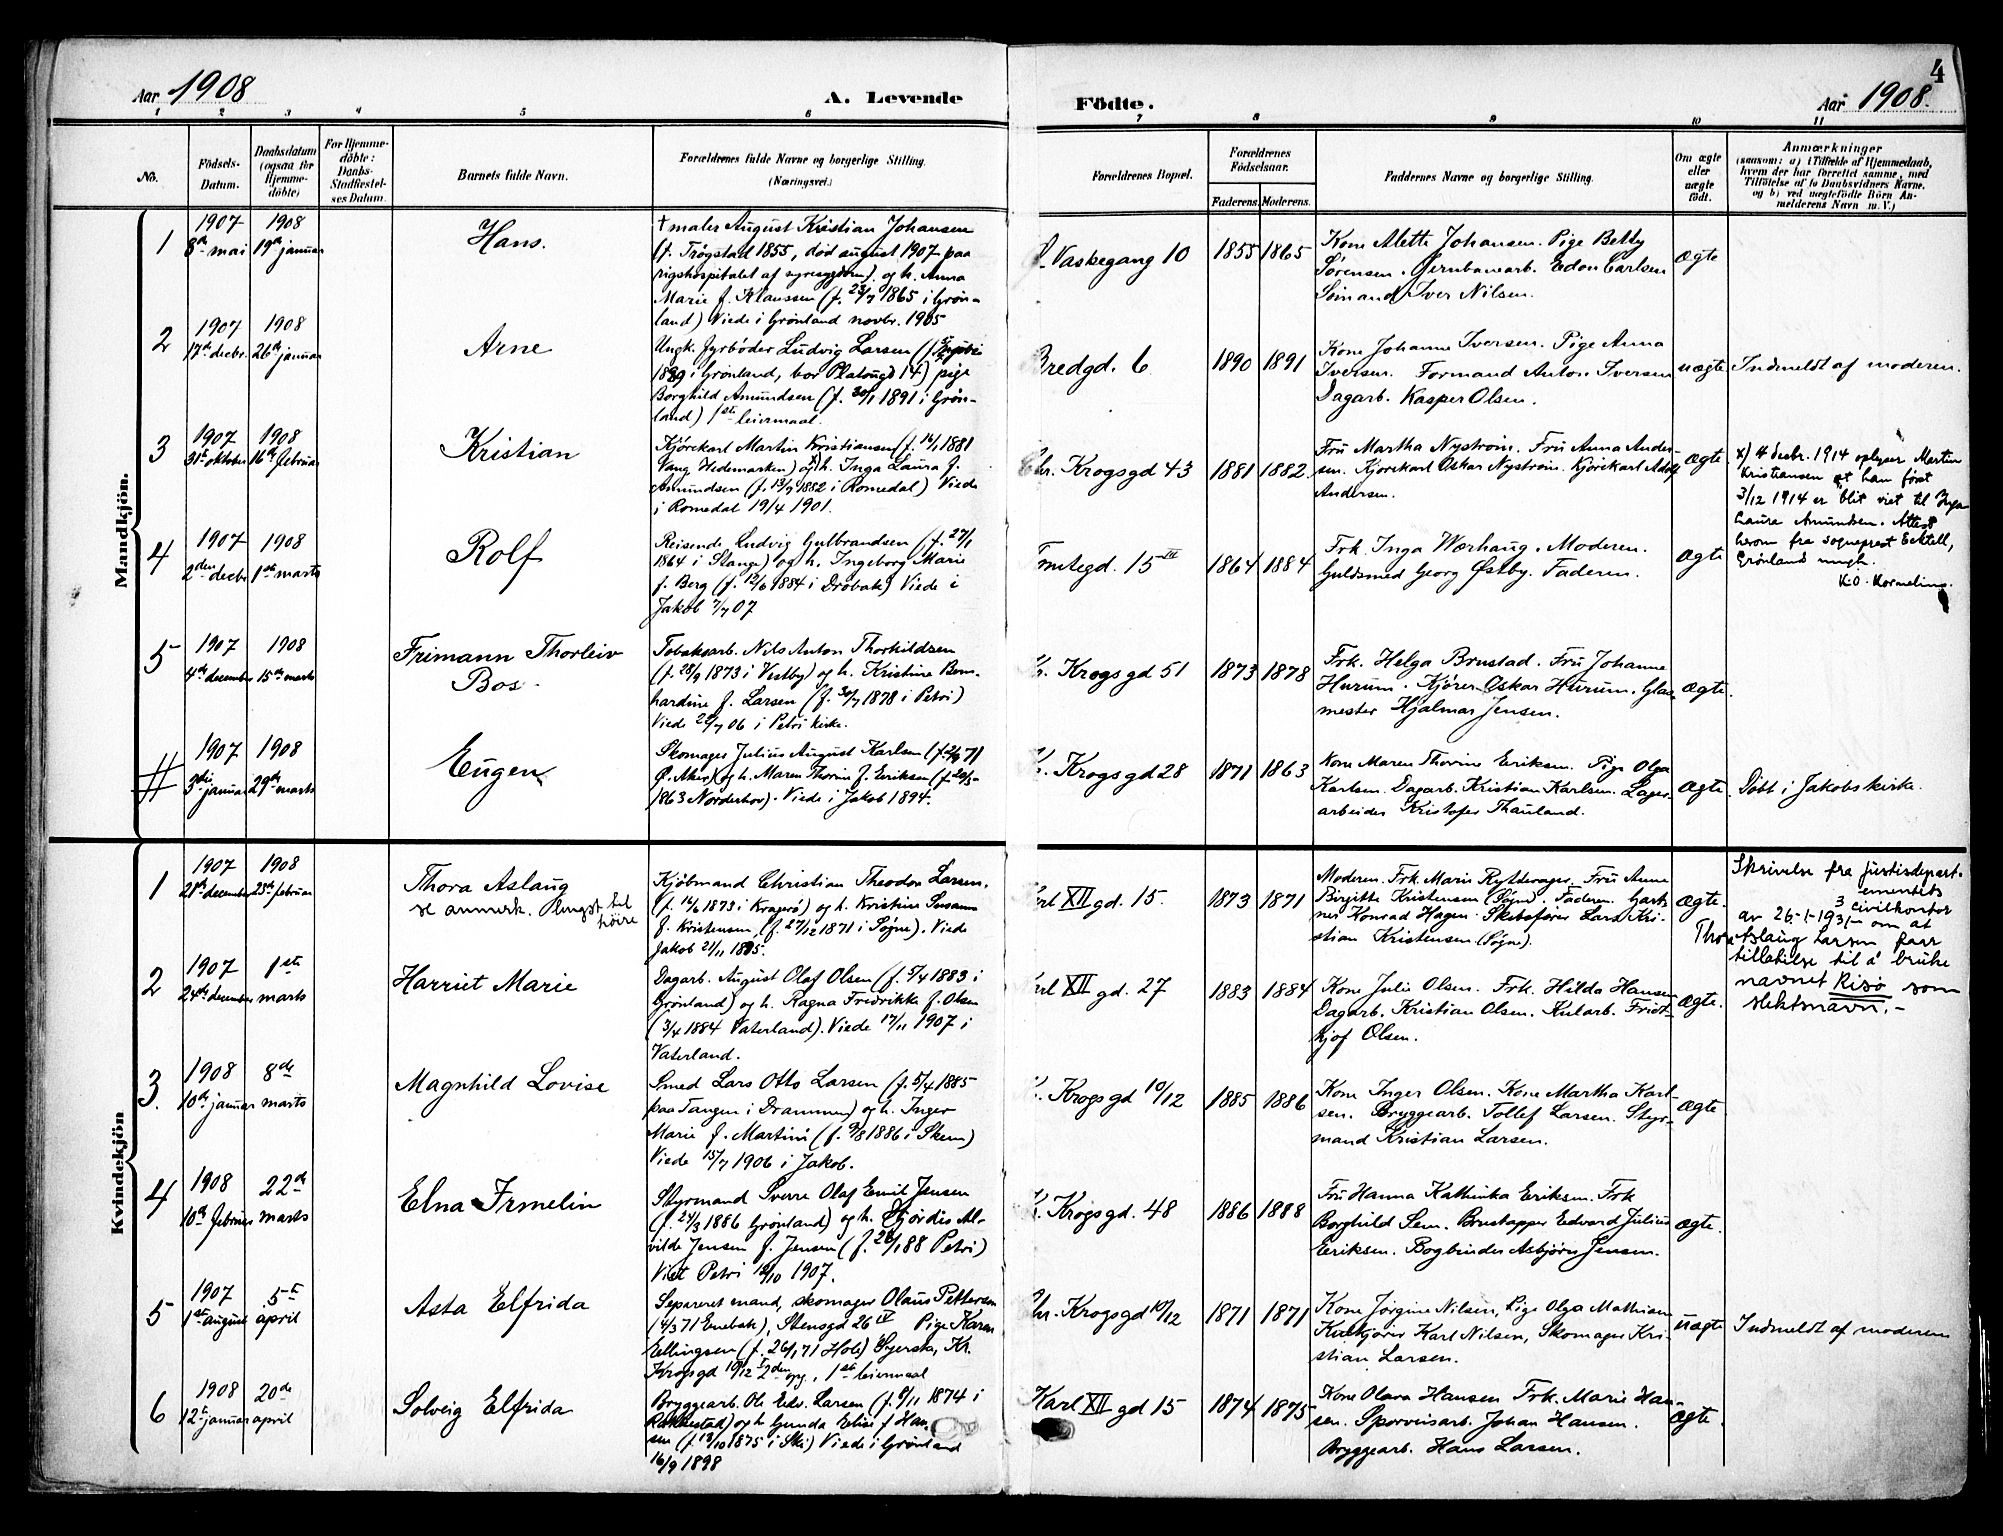 Aar 1908
A. Levende
Födte.
Aar 1908.
4
1 2 3 4 5 6 7 8 9 10 11
No.
Födsels-
Datum.
Daabsdatum
(ogsaa for
Hjemme-
döbte)
For Hjemme-
döbte:
Daabs-
Stadfæstel-
ses Datum.
Barnets fulde Navn.
Forældrenes fulde Navne og borgerlige Stilling.
(Næringsvei.)
Forældrenes Bopæl.
Forældrenes
Födselsaar.
Faderens. Moderens.
Faddernes Navne og borgerlige Stilling.
Om ægte
eller
uægte
födt.
Anmærkninger
(saasom: a) i Tilfælde af Hjemmedaab,
hvem der har forrettet samme, med
Tilföielse af to Daabsvidners Navne,
og b) ved uægtefödte Börn An-
melderens Navn m. V.)
Mandkjön.
1
1907
8de mai
1908
19de januar
Hans.
† maler August Kristian Johansen
(f. Trøgstad 1855, død august 1907 paa
rigshospitalet af syresygdom). og h. Anna
Marie f. Klaussen (f. 23/7 1865 i Grøn-
land) Viede i Grønland novbr. 1905
Vaskegang 10
1855 1865
Kone Alette Johansen. Pige Betty
Sørensen. Jernbanearb. Edon Carlsen
Sømand Iver Nilsen.
Ægte
2
1907
17de decbr.
1908
26de januar
Arne
Ungk. fyrbøder Ludvig Larsen
i Grønland, bor Platougd 14) pige
Borghild Amundsen (f. 30/1 1891 i Grøn-
land) 1ste leiermaal.
Bredgd. 6
1890 1891
Kone Johanne Iversen. Pige Anna
Iversen. Formand Anton Iversen
Dagarb. Kasper Olsen.
uægte
Indmeldt af moderen.
3
1907
31te oktober
1908
16de februar
Kristian
Kjørekarl Martin Kristiansen (f. 14/1 1881
Vang Hedemarken) og x) h. Inga Laura f.
Amundsen (f. 13/7 1882 i Romedal) Viede
i Romedal 19/4 1901.
Chr. Krogsgd 43
1881 1882
Fru Martha Nystrøm. Fru Anna Ander-
sen. Kjørekarl Oskar Nystrøm. Kjørekarl Adolf
Andersen.
Ægte
x) 4 desbr. 1914 oplyser Martin
Kristiansen at han først
3/12 1914 er blit viet til Inga
Laura Amundsen. Attest
herom fra sogneprest
Grønland
K.O. Kornelius.
4
1907
2den decbr
1908
1ste marts
Rolf
Reisende Ludvig Gulbrandsen (f. 27/1
1864 i Stange) og h. Ingeborg Marie
f. Berg (f. 12/6 1884 i Drøbak) Viede i
Jakob 7/7 07
Tomtegd. 15 III
1864 1884
Frk. Inga Wærhaug. Moderen.
Guldsmed Georg Østby. Faderen.
Ægte
5
1907
4de december
1908
15de marts
Frimann Thorleiv
Bos.
Tobaksarb. Nils Anton Thorkildsen
(f. 28/9 1873 i Vestby) og h. Kristine Bern-
hardine f. Larsen (f. 30/7 1878 i Petri)
Viede 22/7 06 i Petri kirke.
Krogsgd 51
1873 1878
Frk. Helga Brustad. Fru Johanne
Hurum. Kjører Oskar Hurum. Glas-
mester Hjalmar Jensen.
Ægte.
#
1907
3die januar
1908
29de marts
Eugen
Skomager Julius August Karlsen (f. 2/9 71
Ø. Aker) og h. Maren Thorine f. Eriksen (f. 20/5-
1863 Norderhov). Viede i Jakob 1894.
Krogsgd 28
1871 1863
Kone Maren Thorine Eriksen. Pige Olga
Karlsen. Dagarb. Kristian Karlsen. Lager-
arbeider Kristofer Thauland.
Ægte.
Døbt i Jakobs kirke.
Kvindekjön
1
1907
28de december
1908
23de februar
Thora Aslaug
se anmerk. til
høire
Kjøbmand Christian Theodor Larsen.
(f. 14/6 1873 i Kragerø) og h. Kristine Susanna
f. Kristensen, (f. 27/12 1871 i Søgne). Viede
Jakob 21/11 1895.
Karl XII gd. 15.
1873 1871
Moderen. Frk. Marie Rytterager. Fru Anne
Birgitte Kristensen (Søgne). Faderen. Gart-
ner Konrad Hagen. Skibsfører Lars Kri-
stian Kristensen (Søgne).
Ægte.
Skrivelse fra justisdepart-
ementets
3 civilkontor
av 26-1-1931 om at
Thora Aslaug Larsen faar
tillatelse til å bruke
navnet Risö som
slektsnavn.-
2
1907
24de december
1ste
marts
Harriet Marie
Dagarb. August Olaf Olsen (f. 5/4 1883 i
Grønland) og h. Ragna Fredrikke f. Olsen
(3/4 1884 Vaterland). Viede 17/11 1907 i
Vaterland.
Karl XII gd. 27
1883 1884
Kone Julie Olsen. Frk. Hilda Hansen
Dagarb. Kristian Olsen. Kularb. Fridt-
hjof Olsen.
Ægte.
3.
1908
10de januar
8de
marts
Magnhild Lovise
Smed Lars Otto Larsen (f. 5/4 1885
paa Tangen i Drammen) og h. Inger
Marie f. Martini (f. 9/8 1886 i Skien)
Viede 15/7 1906 i Jakob.
Krogsgd 10/12
1885 1886
Kone Inger Olsen. Kone Martha Karl-
sen. Bryggearb. Tollef Larsen. Styr-
mand Kristian Larsen.
Ægte
4
1908
10de februar
22de
marts
Elna Irmelin
Styrmand Sverre Olaf Emil Jensen
(f. 24/3 1886 Grønland) og h. Hjørdis Al-
vilde Jensen f. Jensen (f. 28/1 88 Petri)
Viet Petri 12/10 1907.
Krogsgd. 48
1886 1888
Fru Hanna Kathinka Eriksen. Frk
Borghild Sem. Brustapper Edvard Julius
Eriksen. Bogbinder Asbjørn Jensen.
Ægte.
5
1907
1ste august
5te
april
Asta Elfrida
Separeret mand, skomager Olaus Pettersen
(4/3 71 Enebak), Stensgd 26 IV Pige Karen
Ellingsen (f. 26/1 71 Hole) Kr.
Krogsgd 10/12 I 2den opg., 1ste leiermaal
Chr. Krogsgd 10/12
1871 1871
Kone Jørgine Nilsen, Pige Olga Mathisen
Kulkjører Karl Nilsen, Skomager Kri-
stian Larsen.
uægte
Indmeldt af moderen
6
1908
12te januar
20de
april
Solveig Elfrida
Bryggearb. Ole Edv. Larsen (f. 9/11 1874 i
Rakkestad) og h Gunda Elise f Han-
sen (f. 13/10 1875 i Ski) Viede i Grønland
16/9 1898
Karl XII gd 15
1874 1875
Kone Olava Hansen Frk. Marie Han-
sen. Sporveisarb. Johan Hansen.
Bryggearb. Hans Larsen.
Ægte.